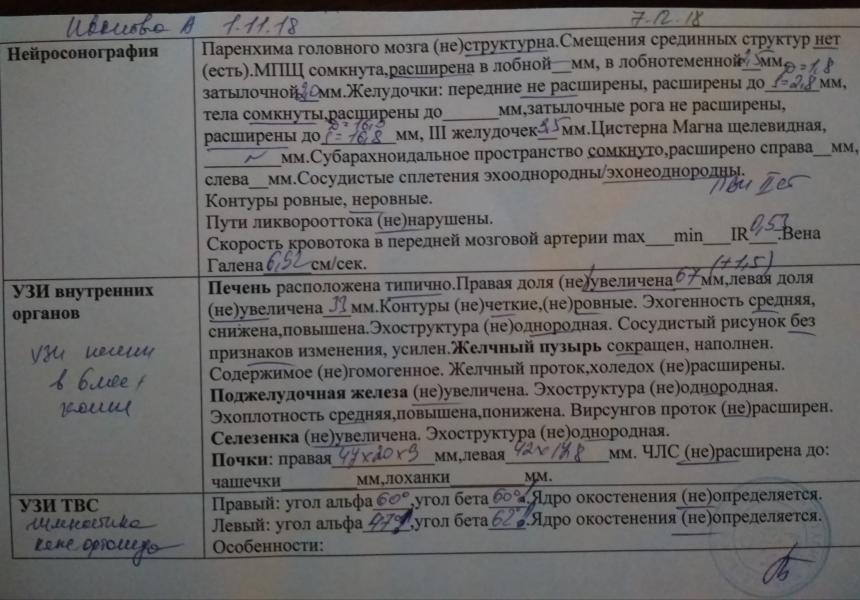 Иванова А 1.11.18 7.12.18
Нейросонография
Паренхима головного мозга (не)структурна.Смещения срединных структур нет
(есть).МПЩ сомкнута,расширена в лобной__мм, в лобнотеменной 2,5 мм,
затылочной 20 мм.Желудочки: передние не расширены, расширены до D=1,8 S=2,8 мм,
тела сомкнуты,расширены до______мм,затылочные рога не расширены,
расширены до D=16,3 S=16,8 мм, III желудочек 3,5 мм.Цистерна Магна щелевидная,
______мм.Субарахноидальное пространство сомкнуто,расширено справа__мм,
слева__мм.Сосудистые сплетения эхооднородны/эхонеоднородны.
Контуры ровные, неровные.
Пути ликворооттока (не)нарушены.
Скорость кровотока в передней мозговой артерии max___min___IR 0,53.Вена
Галена 6,52 см/сек.
УЗИ внутренних
органов
узи
в 6 мес
Печень расположена типично.Правая доля (не)увеличена 67 мм,левая доля (+1,5)
(не)увеличена 33 мм.Контуры (не)четкие,(не)ровные. Эхогенность средняя,
снижена,повышена.Эхоструктура (не)однородная. Сосудистый рисунок без
признаков изменения, усилен.Желчный пузырь сокращен, наполнен.
Содержимое (не)гомогенное. Желчный проток,холедох (не)расширены.
Поджелудочная железа (не)увеличена. Эхоструктура (не)однородная.
Эхоплотность средняя,повышена,понижена. Вирсунгов проток (не)расширен.
Селезенка (не)увеличена. Эхоструктура (не)однородная.
Почки: правая 47х20х9 мм,левая 42х17,8 мм. ЧЛС (не)расширена до:
чашечки________мм,лоханки________мм.
УЗИ ТВС
гимнастика
Правый: угол альфа 60°,угол бета 60°.Ядро окостенения (не)определяется.
Левый: угол альфа 47°,угол бета 62°.Ядро окостенения (не)определяется.
Особенности: